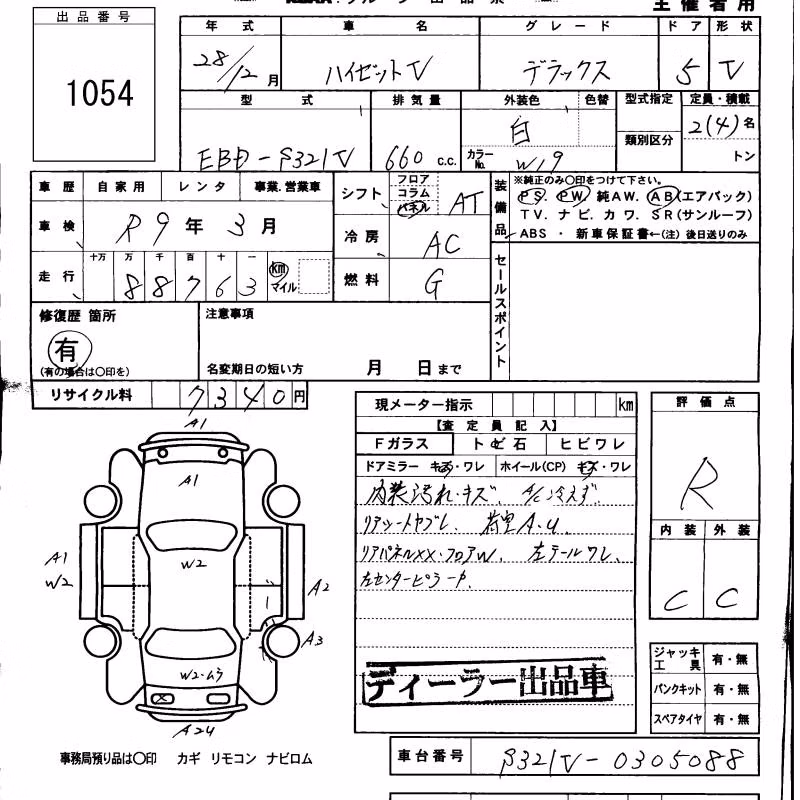 主催者用
出品番号
1054
年式 車名 グレード ドア 形状
28/12月 ハイゼットV デラックス 5 V
型式 排気量 外装色 色替 型式指定 定員・積載
EBD-S321V 660 c.c. 白 類別区分 2(4)名
カラーNo. W19 トン
車歴 自家用 レンタ 事業.営業車
シフト フロア コラム パネル AT
装備品
※純正のみ○印をつけて下さい。
PS. PW. 純AW. AB(エアバック)
TV. ナビ. カワ. SR(サンルーフ)
ABS ・ 新車保証書←(注) 後日送りのみ
車検 R9年3月
冷房 AC
走行 十万 万 千 百 十 一
88763 km マイル
燃料 G
セールスポイント
修復歴 箇所
有
(有の場合は○印を)
注意事項
名変期日の短い方 月 日まで
リサイクル料 7340円
現メーター指示 km
【査定員記入】
Fガラス トビ石 ヒビワレ
ドアミラー キズ・ワレ ホイール(CP) キズ・ワレ
内装汚れ・キズ. A/C冷えず.
リアシートヤブレ. 荷室A.U.
リアパネルXX・フロアW. 左テールワレ.
左センターピラーP.
ディーラー出品車
評価点
R
内装 外装
C C
ジャッキ工具 有・無
パンクキット 有・無
スペアタイヤ 有・無
車台番号 S321V-0305088
A1
A1
W2
A1
W2
A2
A3
W2・ムラ
X
A2U
事務局預り品は○印 カギ リモコン ナビロム